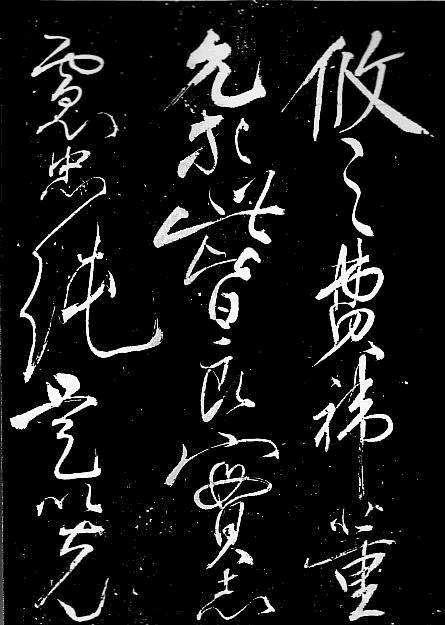 攸之費禕董
允於此皆良實志
慮忠純是以先